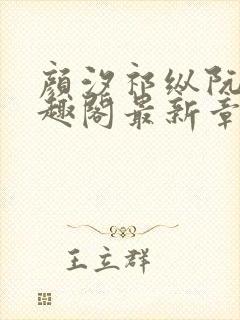 顾汐祁纵阮
趣阁最新章
王立群